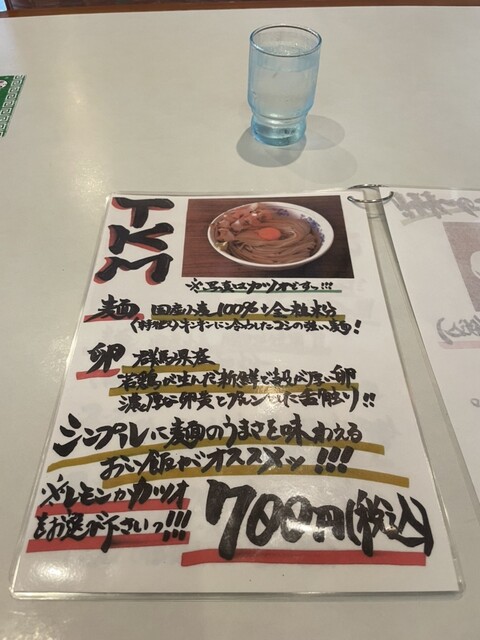 TKM
※写真はカツオですっ!!!
麺 国産小麦100%+全粒粉
(特徴)キンキンに冷やしたコシの強い麺!
卵 群馬県産
若鶏が生んだ新鮮で殻が厚い卵
濃厚な卵黄とプルンとした舌触り!!
シンプルに麺のうまさを味わえる
おい飯がオススメッ!!!
※レモンかカツオ
をお選び下さいっ!!!
700円(税込)